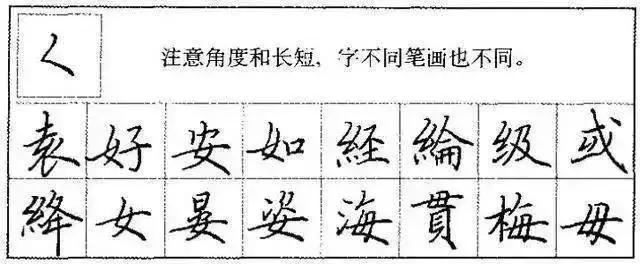 く 注意角度和长短，字不同笔画也不同。
袁好安如經綸级或
絳女晏姿海貫梅毋